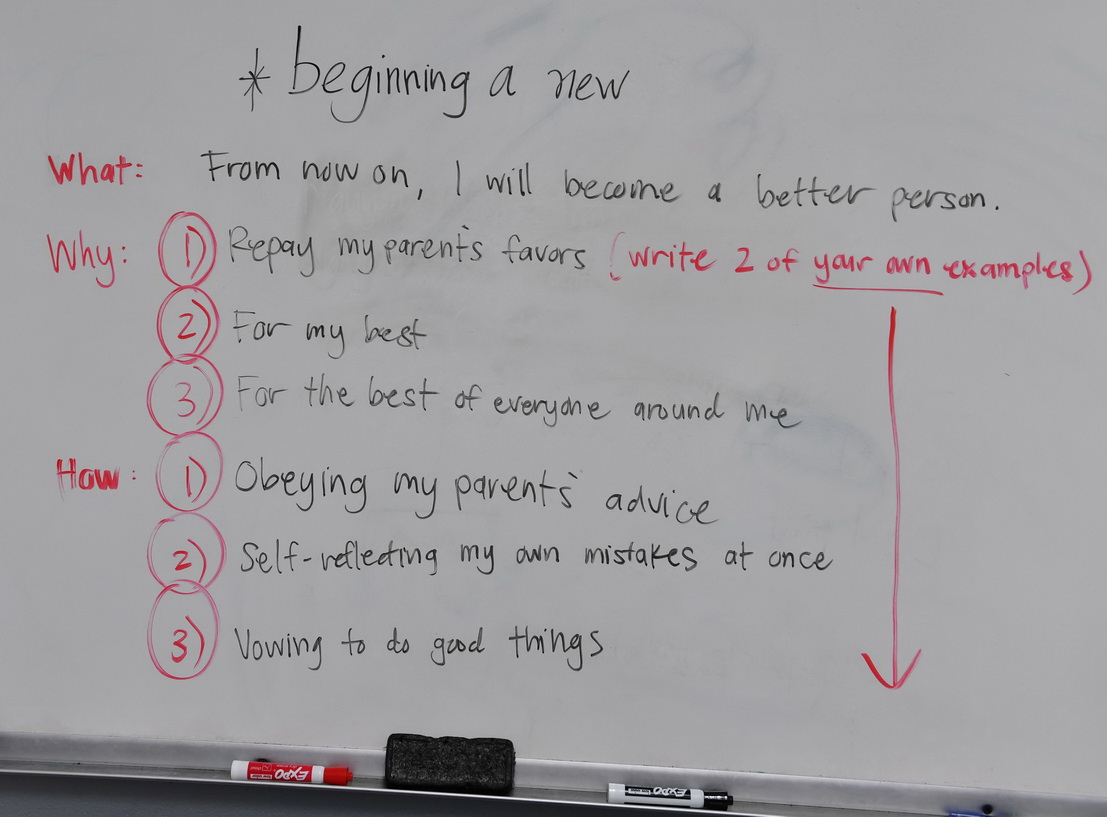 * beginning a new
What: From now on, I will become a better person.
Why: 1) Repay my parent's favors (write 2 of your own examples)
2) For my best
3) For the best of everyone around me
How: 1) Obeying my parents' advice
2) Self-reflecting my own mistakes at once
3) Vowing to do good things
EXPO
EXPO